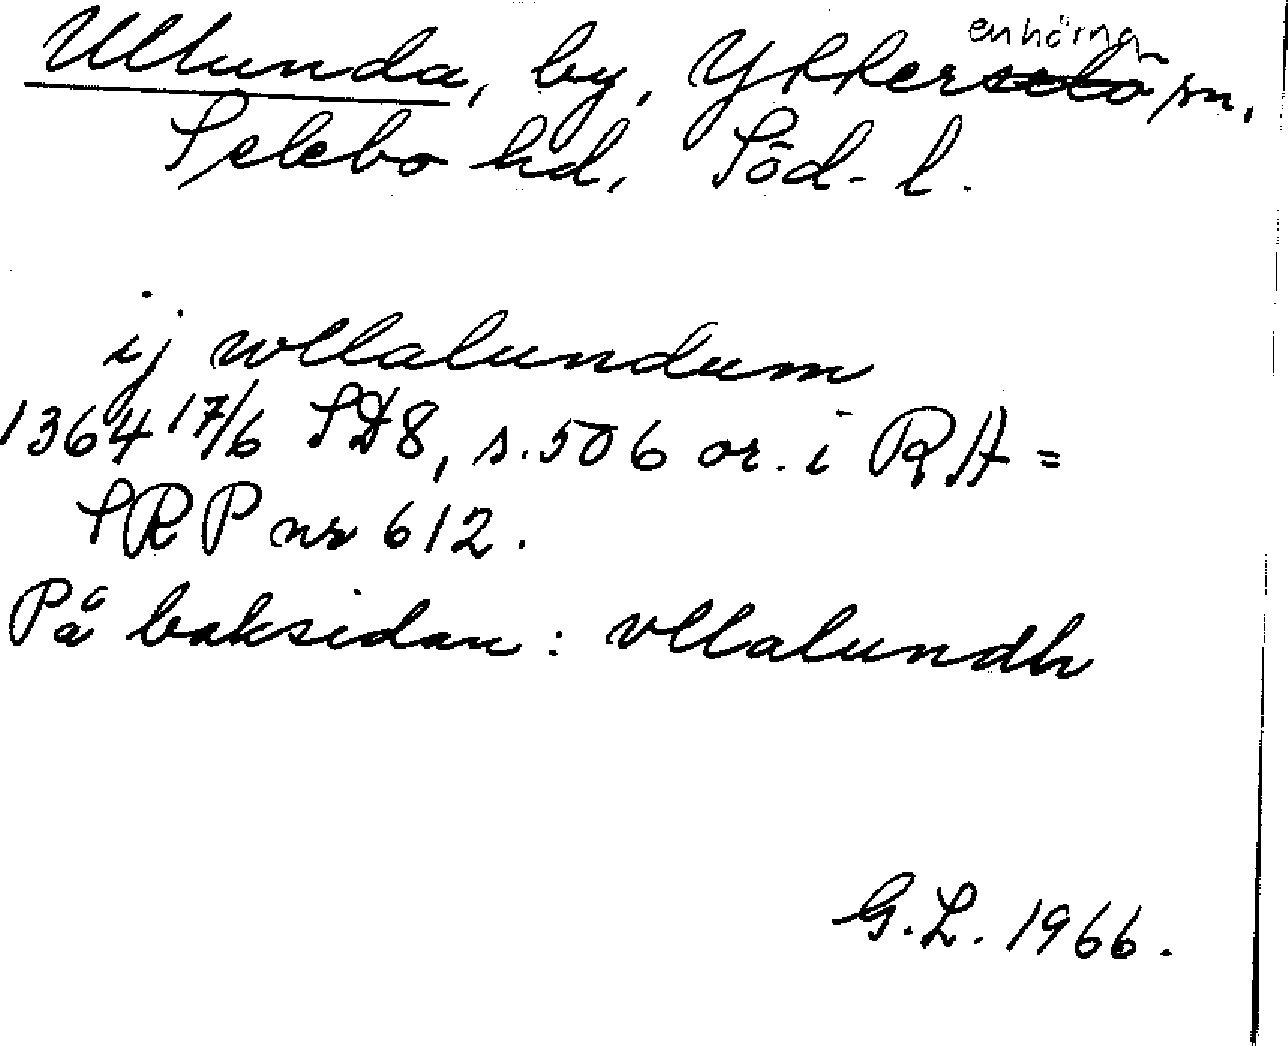 enhörna
Ullunda, by, Ytterselö sn,
Selebo hd, Söd. l.
ij wllalundum
1364 17/6 SD8, s. 506 or. i RA =
SRP nr 612.
På baksidan: vllalundh
G.L. 1966.